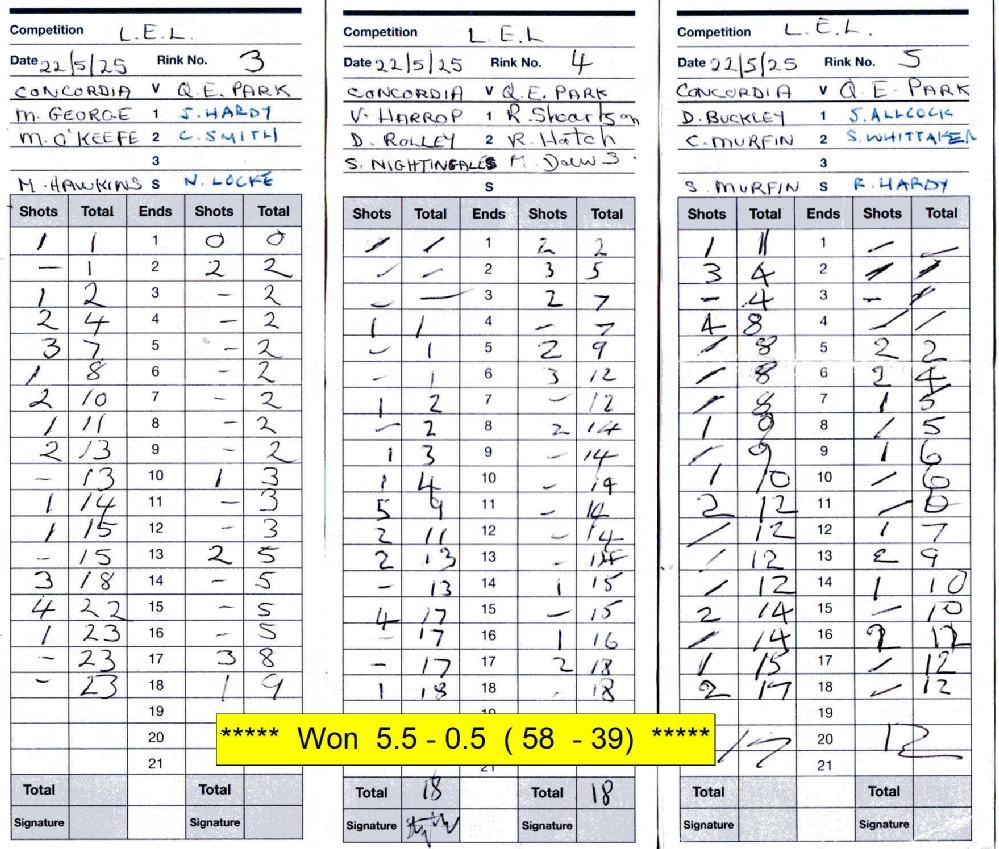 Competition L.E.L.
Date 22/5/25 Rink No. 3
CONCORDIA V Q.E. PARK
M. GEORGE 1 J. HARDY
M. O'KEEFE 2 C. SMITH
3
M. HAWKINS S N. LOCKE
Shots Total Ends Shots Total
1 1 1 0 0
— 1 2 2 2
1 2 3 - 2
2 4 4 - 2
3 7 5 - 2
1 8 6 - 2
2 10 7 - 2
1 11 8 - 2
2 13 9 - 2
- 13 10 1 3
1 14 11 - 3
1 15 12 - 3
- 15 13 2 5
3 18 14 - 5
4 22 15 - 5
1 23 16 - 5
- 23 17 3 8
- 23 18 1 9
19
20
21
Total Total
Signature Signature
Competition L.E.L
Date 22/5/25 Rink No. 4
CONCORDIA V Q.E. PARK
V. HARROP 1 R.
D. ROLLEY 2 R. Hatch
S. NIGHTINGALES M.
S
Shots Total Ends Shots Total
/ / 1 2 2
- - 2 3 5
- — 3 2 7
1 1 4 - 7
- 1 5 2 9
- 1 6 3 12
1 2 7 - 12
- 2 8 2 14
1 3 9 - 14
1 4 10 - 14
5 9 11 - 14
2 11 12 - 14
2 13 13 - 14
- 13 14 1 15
4 17 15 - 15
- 17 16 1 16
- 17 17 2 18
1 18 18 - 18
Total 18 Total 18
Signature Signature
Competition L.E.L.
Date 22/5/25 Rink No. 5
CONCORDIA V Q.E. PARK
D. BUCKLEY 1 J. ALLCOCK
C. MURFIN 2 S. WHITTAKER
3
S. MURFIN S R. HARDY
Shots Total Ends Shots Total
1 1 1 / /
3 4 2 / /
- 4 3 - /
4 8 4 / /
/ 8 5 2 2
/ 8 6 2 4
/ 8 7 1 5
1 9 8 / 5
/ 9 9 1 6
1 10 10 / 6
2 12 11 / 6
/ 12 12 1 7
/ 12 13 2 9
/ 12 14 1 10
2 14 15 - 10
/ 14 16 2 12
1 15 17 / 12
2 17 18 / 12
19
17 20 12
21
Total Total
Signature Signature
***** Won 5.5 - 0.5 ( 58 - 39) *****